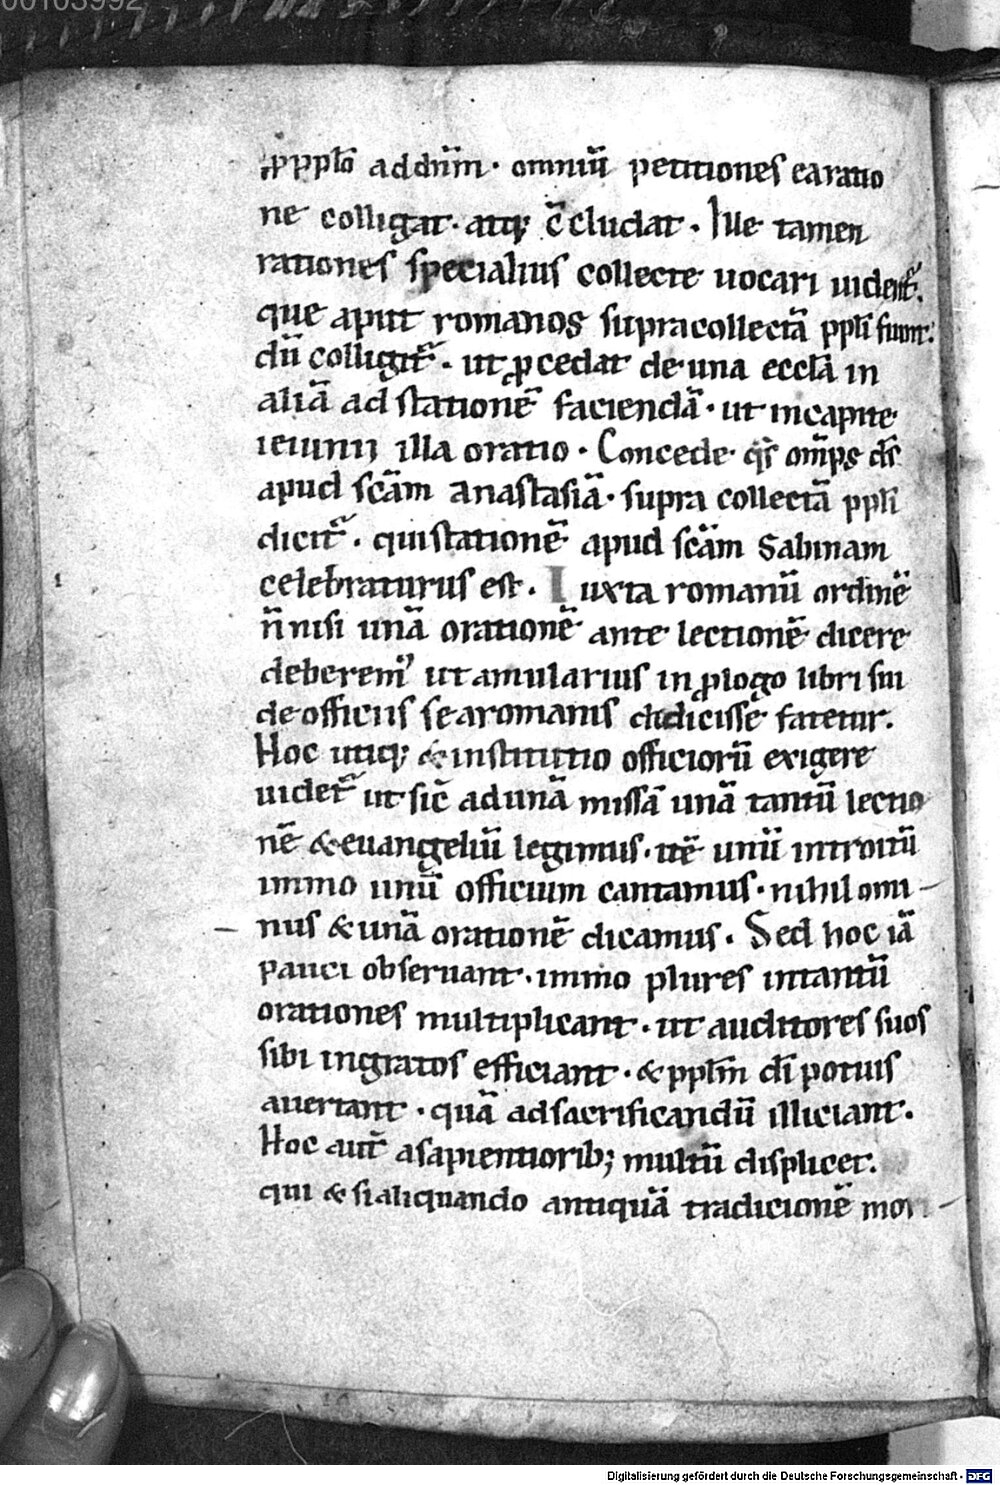 00103992
p ppło ad dn̄m · omniū petitiones ea ratio
ne colligat · atq; c̄cludat · Ille tamen
rationes specialius collecte uocari uident᷑.
que aput romanos supra collectā ppl̄i funt᷑.
dū colligit᷑ · ut ꝓcedat de una eccl̄a in
aliā ad stationē faciendā · ut in capite
ieiunii illa oratio · Concede qs̄ om̄ps ds̄
apud sc̄am anastasiā · supra collectā ppl̄i
dicit᷑ · qui stationē apud sc̄am Sabinam
celebraturus est · Iuxta romanū ordinē
n̄ nisi unā orationē ante lectionē dicere
deberem᷒ ut amularius in ꝓlogo libri sui
de officiis se a romanis didicisse fatetur.
Hoc utiq; & institutio officiorū exigere
uidet᷑ ut sic̄ ad unā missā unā tantū lectio
nē & euangeliū legimus · itē unū introitū
immo unū officium cantamus · nihil omi-
nus & unā orationē dicamus · Sed hoc iā
pauci obseruant · immo plures in tantū
orationes multiplicant · ut auditores suos
sibi ingratos efficiant · & ppl̄m di̅ potius
auertant · quā ad sacrificandū illiciant.
Hoc aut̄ a sapientiorib; multū displicet.
qui & si aliquando antiquā tradicionē mori-
Digitalisierung gefördert durch die Deutsche Forschungsgemeinschaft - DFG